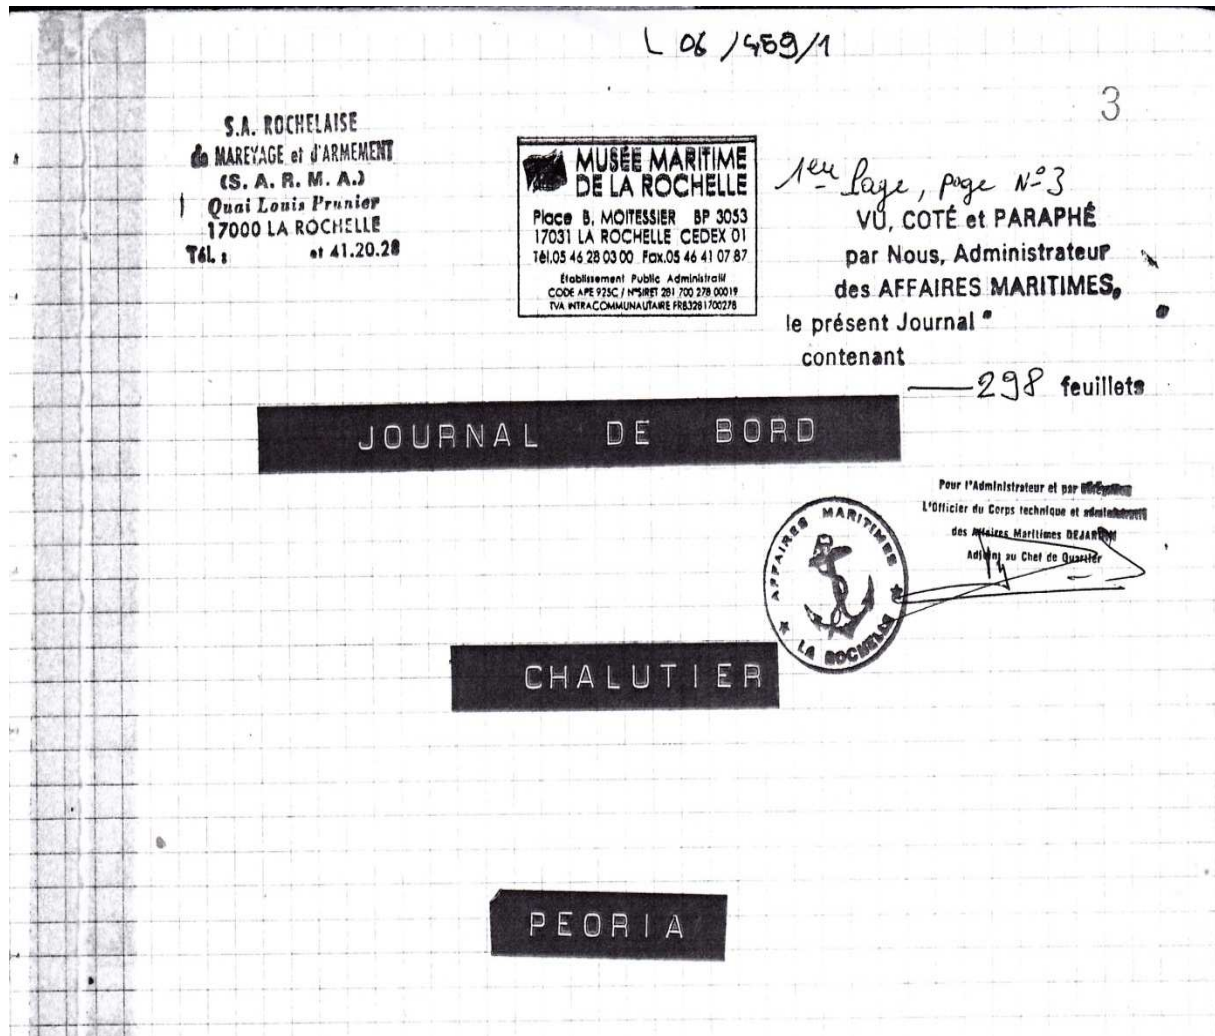 L 06/459/1
3
S.A. ROCHELAISE
de MAREYAGE et d'ARMEMENT
(S. A. R. M. A.)
Quai Louis Prunier
17000 LA ROCHELLE
Tél. : et 41.20.28
MUSÉE MARITIME
DE LA ROCHELLE
Place B. MOITESSIER BP 3053
17031 LA ROCHELLE CEDEX 01
Tél.05 46 28 03 00 Fax.05 46 41 07 87
Établissement Public Administratif
CODE APE 925C / N°SIRET 281 700 278 00019
TVA INTRACOMMUNAUTAIRE FR83281700278
1ere Page, page N°3
VU, COTÉ et PARAPHÉ
par Nous, Administrateur
des AFFAIRES MARITIMES,
le présent Journal
contenant
298 feuillets
JOURNAL DE BORD
Pour l'Administrateur et par
L'Officier du Corps technique et
des Affaires Maritimes
Adjoint au Chef de Quartier
AFFAIRES MARITIMES
LA ROCHELLE
CHALUTIER
PEORIA